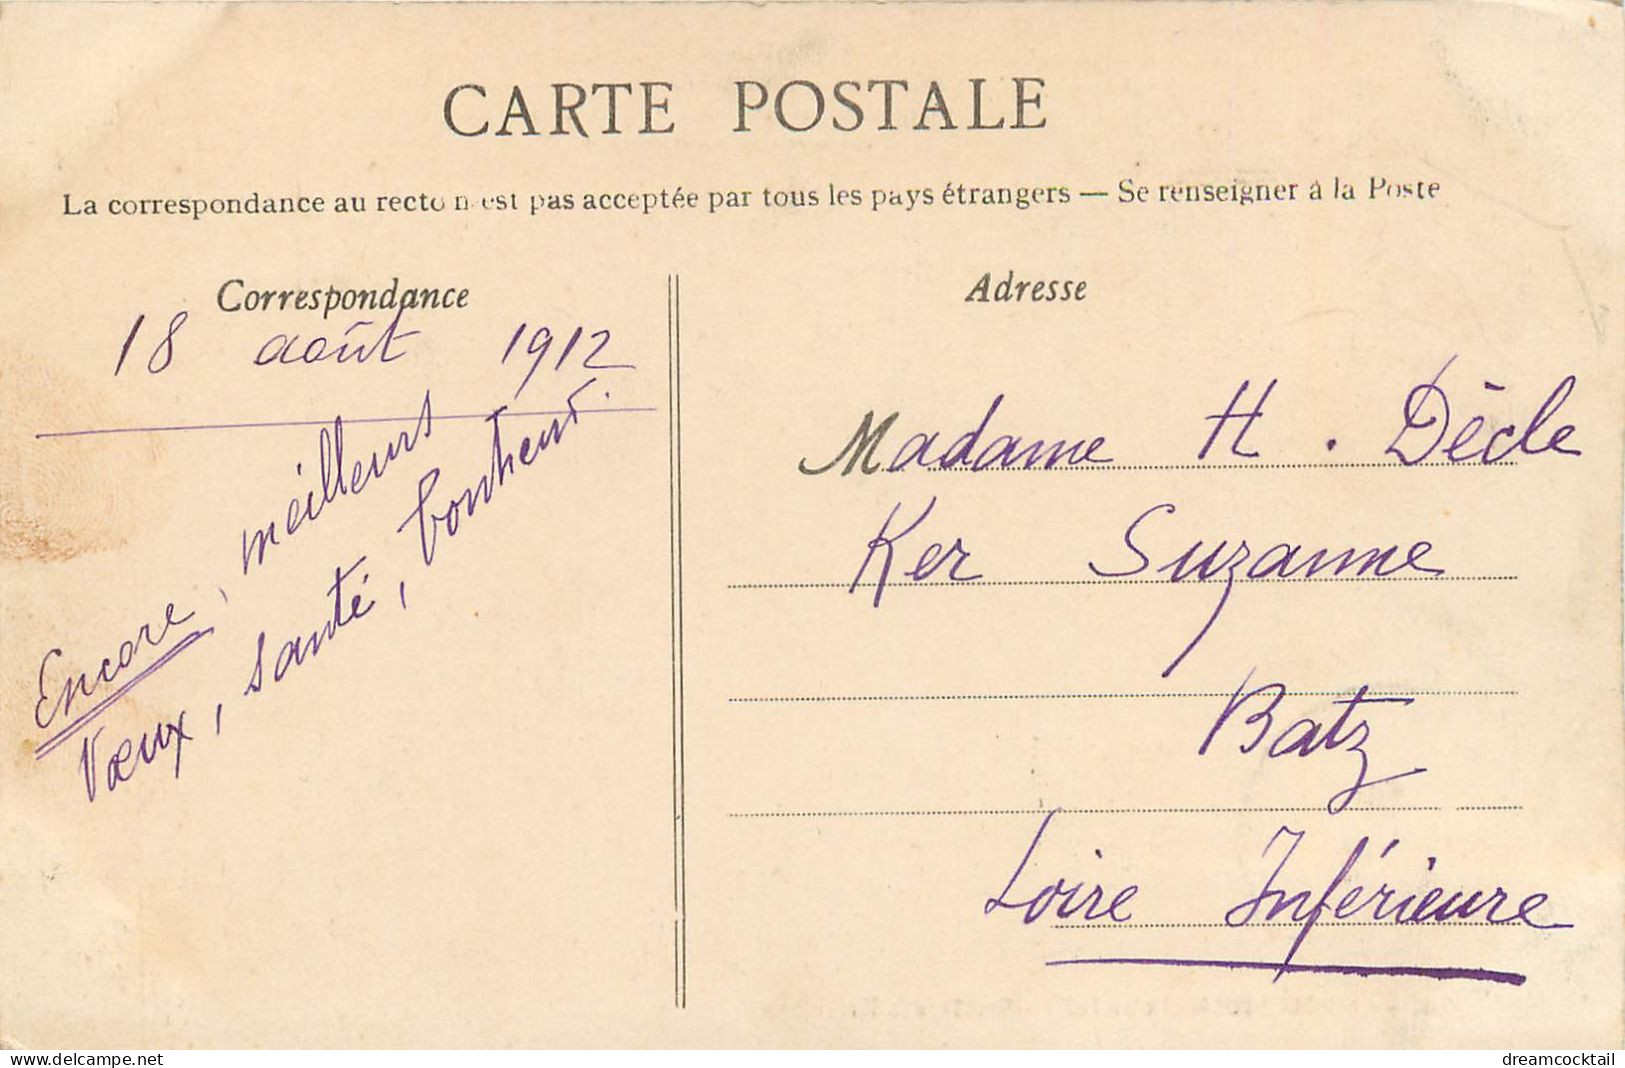 CARTE POSTALE
La correspondance au recto n'est pas acceptée par tous les pays étrangers — Se renseigner à la Poste
Correspondance
18 août 1912
Encore, meilleurs
Vœux, santé, bonheur.
Adresse
Madame H. Dècle
Ker Suzanne
Batz
Loire Inférieure
delcampe.net
dreamcocktail